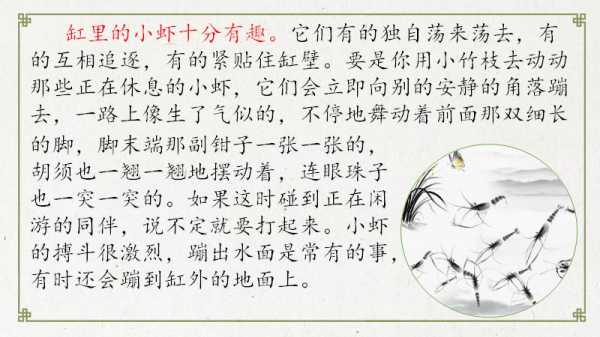 缸里的小虾十分有趣。它们有的独自荡来荡去，有
的互相追逐，有的紧贴住缸壁。要是你用小竹枝去动动
那些正在休息的小虾，它们会立即向别的安静的角落蹦
去，一路上像生了气似的，不停地舞动着前面那双细长
的脚，脚末端那副钳子一张一张的，
胡须也一翘一翘地摆动着，连眼珠子
也一突一突的。如果这时碰到正在闲
游的同伴，说不定就要打起来。小虾
的搏斗很激烈，蹦出水面是常有的事，
有时还会蹦到缸外的地面上。